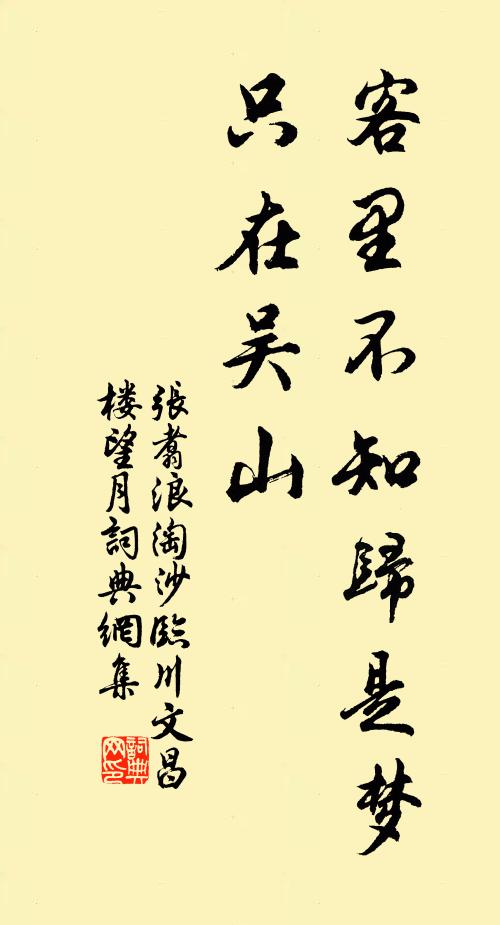 客里不知歸是梦
只在吴山
張翥浪淘沙臨川文昌
楼望月詞典網集
詞典
网印